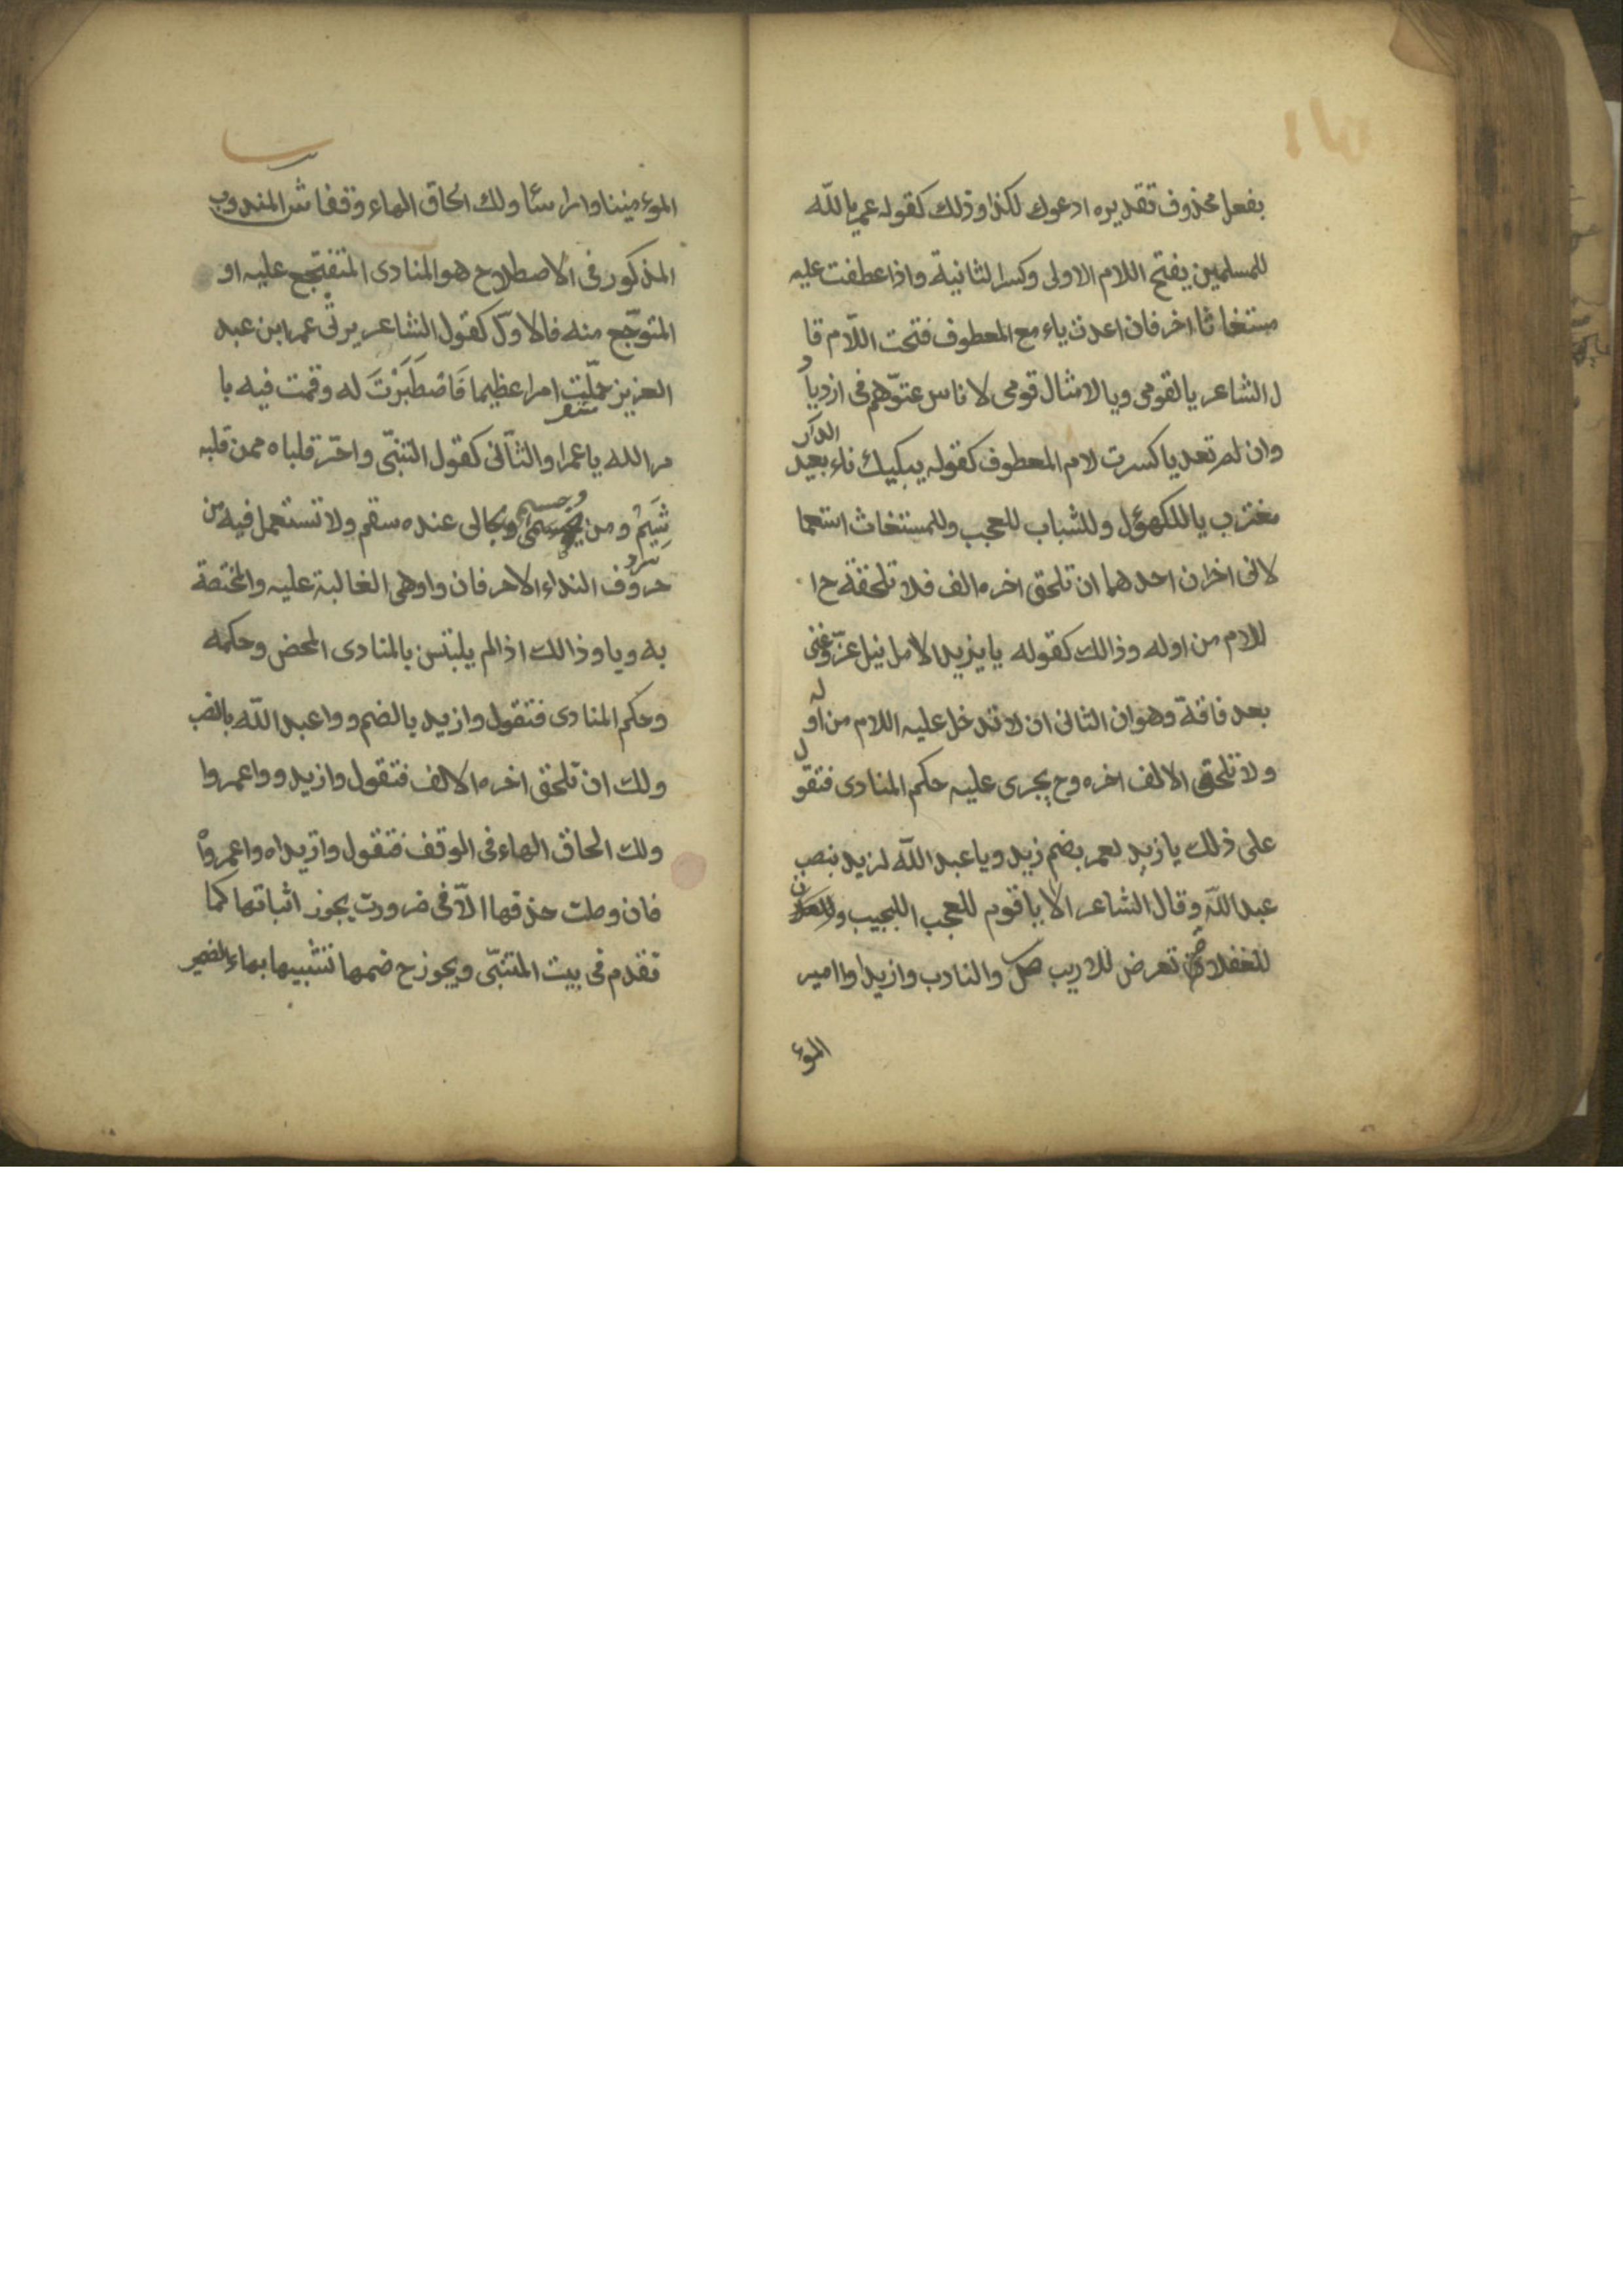 بفعل محذوف تقديره ادعوك لكذا وذلك كقوله عمر يا للّه
للمسلمين بفتح اللام الاولى وكسر الثانية واذا عطفت عليه
مستغاثا اخر فان اعدت ياء مع المعطوف فتحت اللّام قا
ل الشاعر يا لقومى ويا لامثال قومى لاناس عتوّهم فى ازديا د
وان لم تعد يا كسرت لام المعطوف كقوله يبكيك ناء بعيد الدار
مغترب يا للكهول وللشباب للعجب وللمستغاث استعما
لانى اخران احدهما ان تلحق اخره الف فلا تلحقه ح ا
للام من اوله وذالك كقوله يا يزيدا لامل نيل عزّ وغنى
بعد فاقة وهوان الثانى ان لا تدخل عليه اللام من او له
ولا تلحق الالف اخره وح يجرى عليه حكم المنادى فتقو ل
على ذلك يا زيد لعمر بضم زيد ويا عبد اللّه لزيد بنصب
عبد اللّه وقال الشاعر الا يا قوم للعجب العجيب
للغفلات تعرض للاريب ص والنادب وازيدا وا امير
الموء
الموء منينا وا راسا ولك الحاق الهاء وقفا ش المندوب
المذكور فى الاصطلاح هو المنادى المتفجع عليه او
المتوجّع منه فالاوّل كقول الشاعر يرثى عمر ابن عبد
العزيز حمّلت امرا عظيما فَاصْطَبَرْتَ له وقمت فيه با
مر الله يا عمرا والثّانى كقول المتنبّى واحرّ قلباه ممن قلبه
شَبِمُ ومن وبحسمى وحالى عنده سقم ولا تستعمل فيه من
حروف النداء الا حرفان وا وهى الغالبة عليه والمختصة
به ويا وذالك اذا لم يلبتس بالمنادى المحض وحكمه
وحكم المنادى فتقول وازيد بالضم ووا عبد اللّه بالنصب
ولك ان تلحق اخره الالف فتقول وازيدا وواعمروا
ولك الحاق الهاء فى الوقف فتقول وازيداه واعمرواْ
فان وصلت حذفتها الاّ فى ضرورت يجوز اثباتها كما
تقدم فى بيت المتنبّى ويجوز ح ضمها تشبيها بهاء الضمير